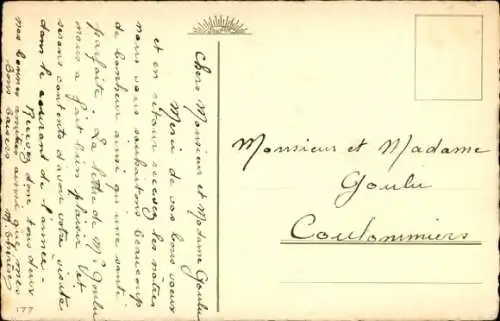 Chers Monsieur et Madame Goulu
Merci de vos bons voeux
et en retour recevez les nôtres
nous vous souhaitons beaucoup
de bonheur ainsi qu'une santé
parfaite. La lettre de Mr Goulu
nous a fait bien plaisir et
serons contents d'avoir votre visite
dans le courant de l'année.
Recevez donc tous deux
nos bonnes amitiés ainsi que mes
bons baisers
177
Monsieur et Madame
Goulu
Coulommiers